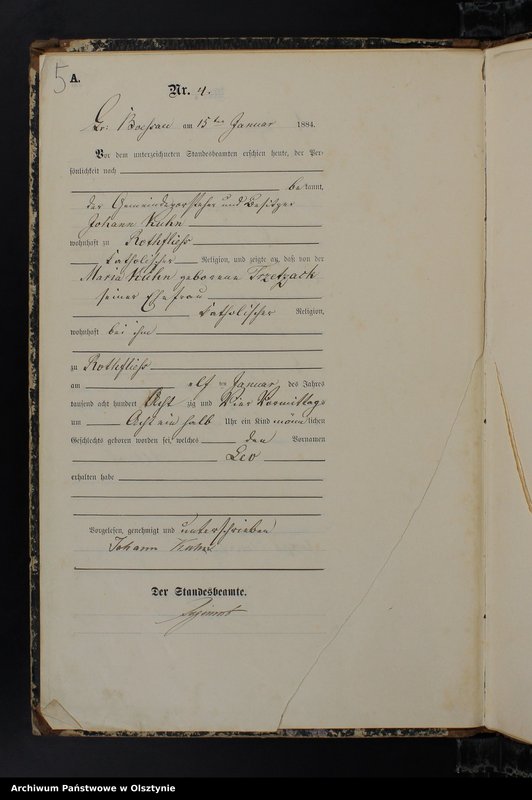 5
A.
Nr. 4.
Gr: Boessau am 15ten Januar 1884.
Vor dem unterzeichneten Standesbeamten erschien heute, der Per-
sönlichkeit nach
be kannt,
der Gemeindevorsteher und Besitzer
Johann Kuhn
wohnhaft zu Rothfließ
katholischer Religion, und zeigte an, daß von der
Maria Kuhn geborene Trzetzack
seiner Ehefrau
katholischer Religion,
wohnhaft bei ihm
zu Rothfließ
am elf ten Januar des Jahres
tausend acht hundert Acht zig und Vier Vormittags
um Acht ein halb Uhr ein Kind männ lichen
Geschlechts geboren worden sei, welches den Vornamen
Leo
erhalten habe
Vorgelesen, genehmigt und unterschrieben
Johann Kuhn
Der Standesbeamte.
Archiwum Państwowe w Olsztynie